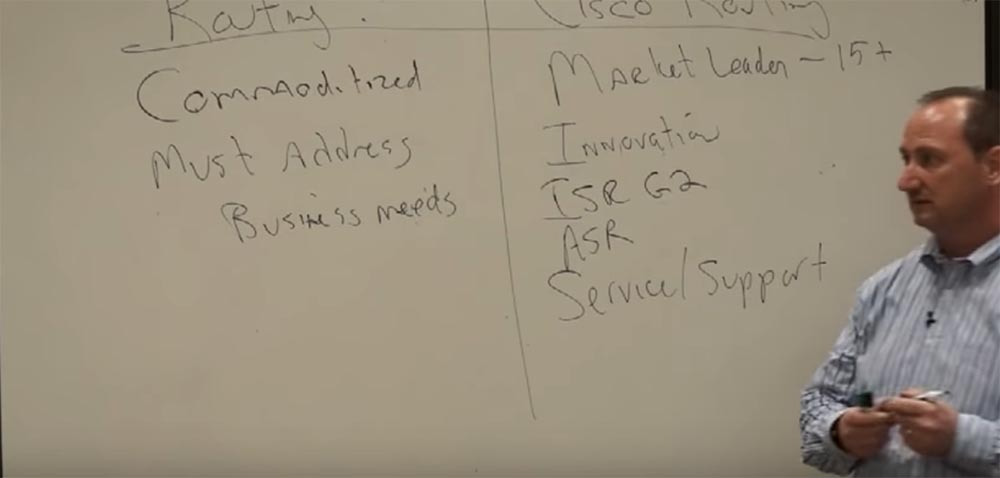 Routing.
Commoditized
Must Address
Business needs
Cisco Routing
Market Leader - 15+
Innovation
ISR G2
ASR
Service/Support